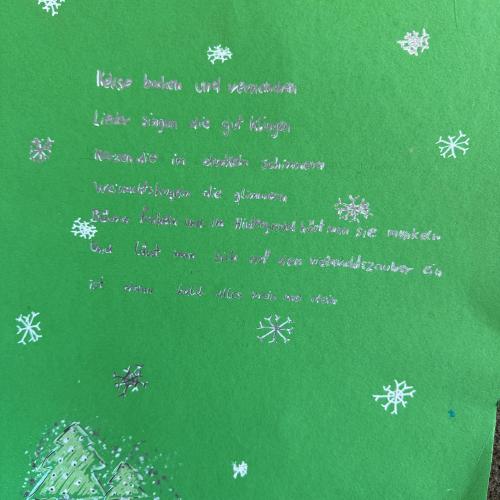 Kekse backen und verzieren
Lieder singen die gut klingen
Kerzen die im dunkeln schimmern
Weinachtskugeln die glimmern
und im Hintergrund hört man sie munkeln
Und lässt man sich auf den weinachtszauber ein
ist dann bald alles